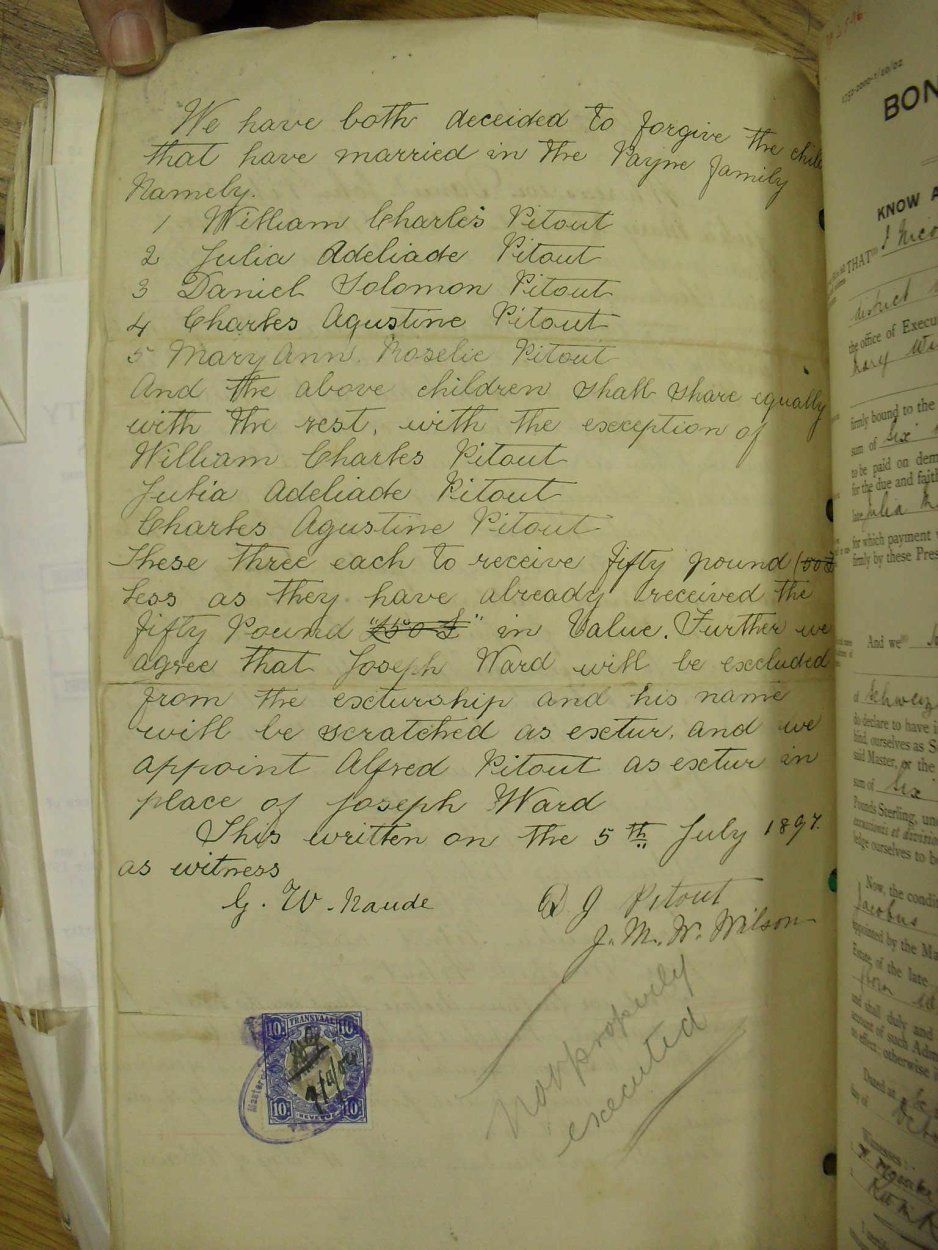 We have both deceided to forgive the
that have married in the Payne family
Namely.
1 William Charles Pitout
2 Julia Adeliade Pitout
3 Daniel Solomon Pitout
4 Charles Agustine Pitout
5 Mary Ann. Roselie Pitout
And the above children shall share equally
with the rest, with the exception of
William Charles Pitout
Julia Adeliade Pitout
Charles Agustine Pitout
These three each to receive fifty pound
Less as they have already received the
fifty Pound "£50 £" in Value. Further we
agree that Joseph Ward will be excluded
from the excturship and his name
will be scratched as exctur, and we
appoint Alfred Pitout as exctur in
place of Joseph Ward
This written on the 5th July 1897.
as witness
G. W. Naude
D J Pitout
J. M. W. Wilson
Not propperly
executed
10 TRANSVAAL 10
10 REVENUE 10
BON
KNOW A
THAT
district
the office of Execu
firmly bound to the
sum of Six
to be paid on dem
for the due and faith
late Julia
for which payment
firmly by these Pres
And we
Schweiz
do declare to have
bind ourselves as S
said Master, or the
sum of Six
Pounds Sterling, un
ledge ourselves to be
Now, the condi
Jacobus
appointed by the Ma
Estate of the late
and shall duly and
account of such Adm
no effect: otherwise
Dated at
day of
Witnesses: